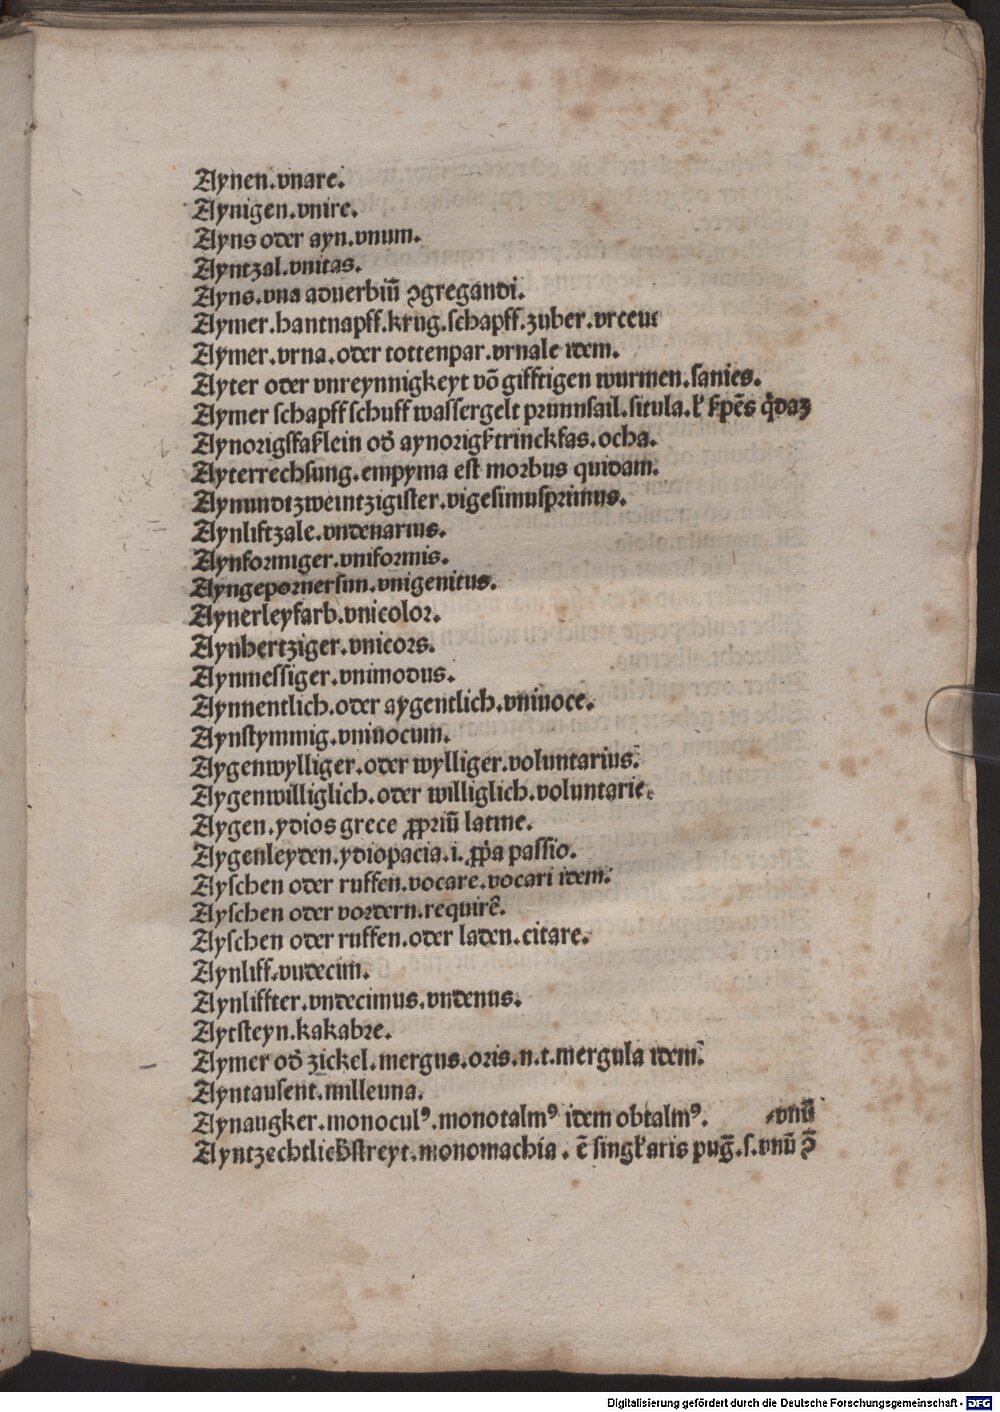 Aynen.vnare.
Aynigen.vnire.
Ayns oder ayn.vnum.
Ayntzal.vnitas.
Ayns.vna aduerbiū ꝯgregandi.
Aymer.hantnapff.krug.schapff.zuber.vrceus
Aymer.vrna.oder tottenpar.vrnale idem.
Ayter oder vnreynnigkeyt vō gifftigen wurmen.sanies.
Aymer schapff schuff wassergelt prunnsail.situla.
Aynorigsfaslein od̕ aynorigk trinckfas.ocha.
Ayterrechsung.empyma est morbus quidam.
Aynundtzweintzigister.vigesimusprimus.
Aynliftzale.vndenarius.
Aynformiger.vniformis.
Ayngepornersun.vnigenitus.
Aynerleyfarb.vnicolor.
Aynhertziger.vnicors.
Aynmessiger.vnimodus.
Aynnentlich.oder aygentlich.vniuoce.
Aynstymmig.vniuocum.
Aygenwylliger.oder wylliger.voluntarius.
Aygenwilliglich.oder williglich.voluntarie.
Aygen.ydios grece ꝓpriū latine.
Aygenleyden.ydiopacia.i.ꝓp̄a passio.
Ayschen oder ruffen.vocare.vocari idem.
Ayschen oder vordern.requirē.
Ayschen oder ruffen.oder laden.citare.
Aynliff.vndecim.
Aynliffter.vndecimus.vndenus.
Aytsteyn.kakabre.
Aymer od̕ zickel.mergus.oris.n.t.mergula idem.
Ayntausent.milleuna.
Aynaugker.monoculꝰ.monotalmꝰ idem obtalmꝰ. vnū
Ayntzechtlichstreyt.monomachia. ē singl̕aris puḡ.s.vnū ꝯ̄
Digitalisierung gefördert durch die Deutsche Forschungsgemeinschaft - DFG